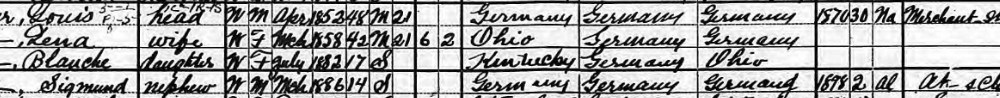 Louis head W M Apr 1852 48 M 21 Germany Germany Germany 1870 30 Na Merchant
Lena wife W F Mch 1858 42 M 21 6 2 Ohio Germany Germany
Blanche daughter W F July 1882 17 S Kentucky Germany Ohio
Sigmund nephew W M Mch 1886 14 S Germany Germany Germany 1898 2 Al At